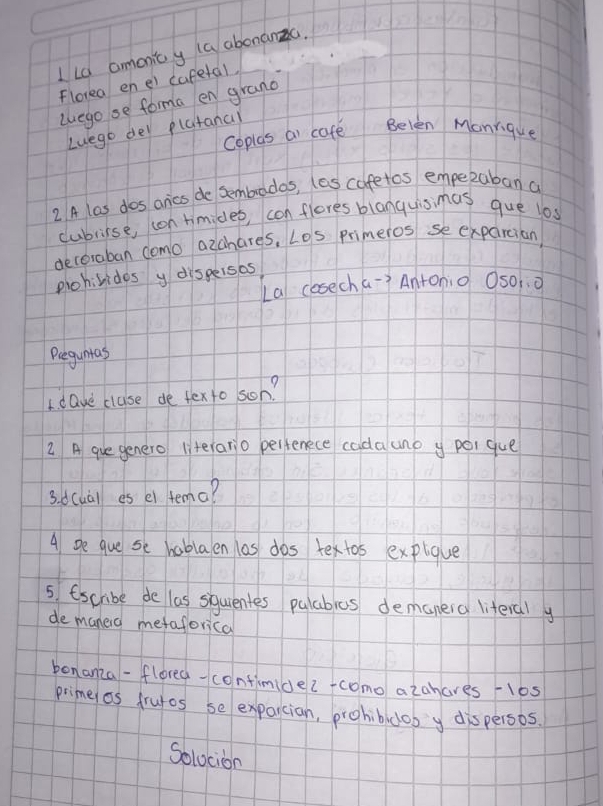 1 La amonia y la abonanza.
Florea en el cafetal.
Luego se forma en grano
Luego del platanal
Coplas al café Belén Manrique
2 A las dos años de sembrados, los cafetos empezaban a
cubrirse, con timides, con flores blanquisimas que los
decoraban como azahares. Los primeros se exparcian,
prohibidos y dispersos,
La cosecha -> Antonio Osorio
Preguntas
1. ¿Qué clase de texto son?
2 A que genero literario pertenece cada uno y por que
3. ¿Cuál es el tema?
4 De que se habla en las dos textos explique
5. Escribe de las siguientes palabras de manera literal y
de manera metaforica
bonanza - florea - contimidez - como azahares - los
primeros frutos se exparcian, prohibidos y dispersos.
Solución